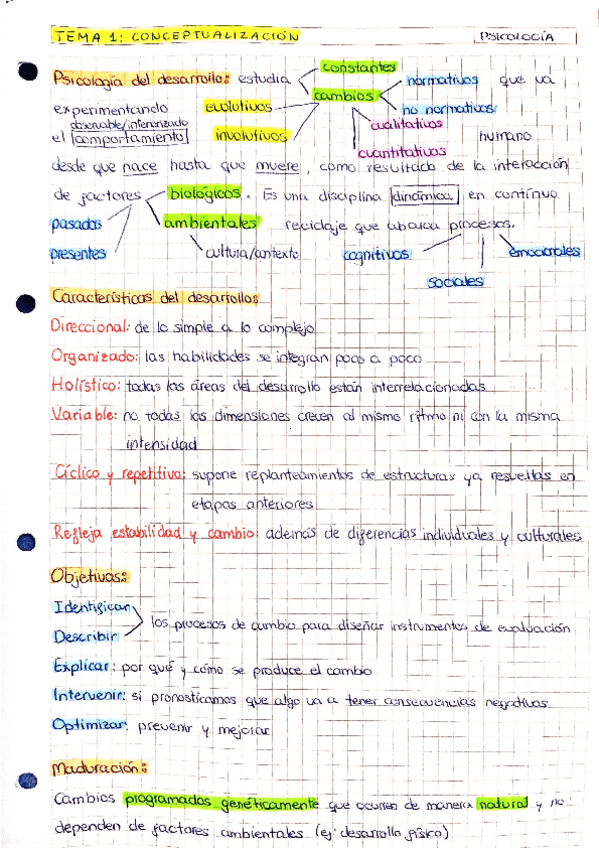 TEMA 1: CONCEPTUALIZACIÓN
PSICOLOGÍA
Psicología del desarrollo: estudia
constantes
cambios
normativos
no normativos
que va
experimentando
evolutivos
involutivos
cualitativos
cuantitativos
observable/interiorizado
el comportamiento
humano
desde que nace hasta que muere, como resultado de la interacción
de factores
biológicos. Es una disciplina dinámica en continuo
pasados
presentes
ambientales
reciclaje que abarca procesos.
cultura/contexto
cognitivos
sociales
emocionales
Características del desarrollo:
Direccional: de lo simple a lo complejo
Organizado: las habilidades se integran poco a poco
Holístico: todas las áreas del desarrollo están interrelacionadas
Variable: no todas las dimensiones crecen al mismo ritmo ni con la misma
intensidad
Cíclico y repetitivo: supone replanteamientos de estructuras ya resueltas en
etapas anteriores
Refleja estabilidad y cambio: además de diferencias individuales y culturales
Objetivos:
Identificar
Describir
los procesos de cambio para diseñar instrumentos de evaluación
Explicar: por qué y cómo se produce el cambio
Intervenir: si pronosticamos que algo va a tener consecuencias negativas
Optimizar: prevenir y mejorar
Maduración:
Cambios programados genéticamente que ocurren de manera natural y no
dependen de factores ambientales (ej: desarrollo físico)